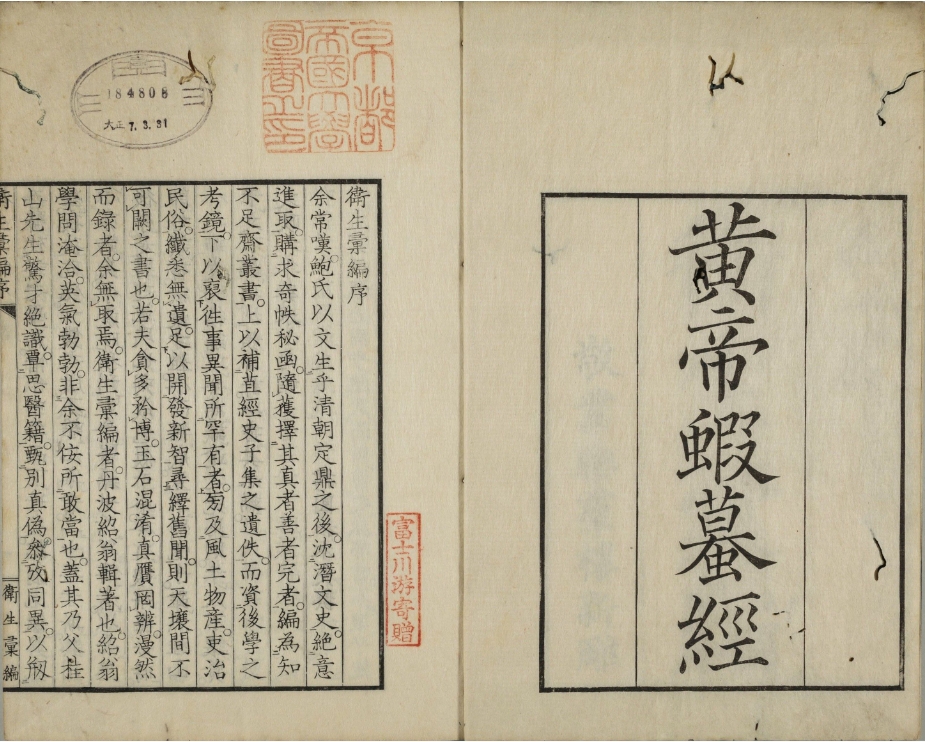 黃帝蝦蟇經
京都
帝國大學
圖書之印
184808
大正7.3.31
富士川游寄贈
衛生彙編序
余常嘆鮑氏以文生乎清朝定鼎之後。沈潛文史。絕意
進取。購求奇帙秘函。隨獲擇其真者善者完者。編為知
不足齋叢書。上以補苴經史子集之遺佚。而資後學之
考鏡。下以裒徃事異聞所罕有者。旁及風土物產。吏治
民俗。纖悉無遺。足以開發新智。尋繹舊聞。則天壤間不
可闕之書也。若夫貪多矜博。玉石混淆。真贋罔辨。漫然
而錄者。余無取焉。衛生彙編者。丹波紹翁輯著也。紹翁
學問淹洽。英氣勃勃。非余不佞所敢當也。蓋其乃父桂
山先生驚才絕識。覃思醫籍。甄別真偽。叅攷同異。以剏
衛生彙編序
衛生彙編